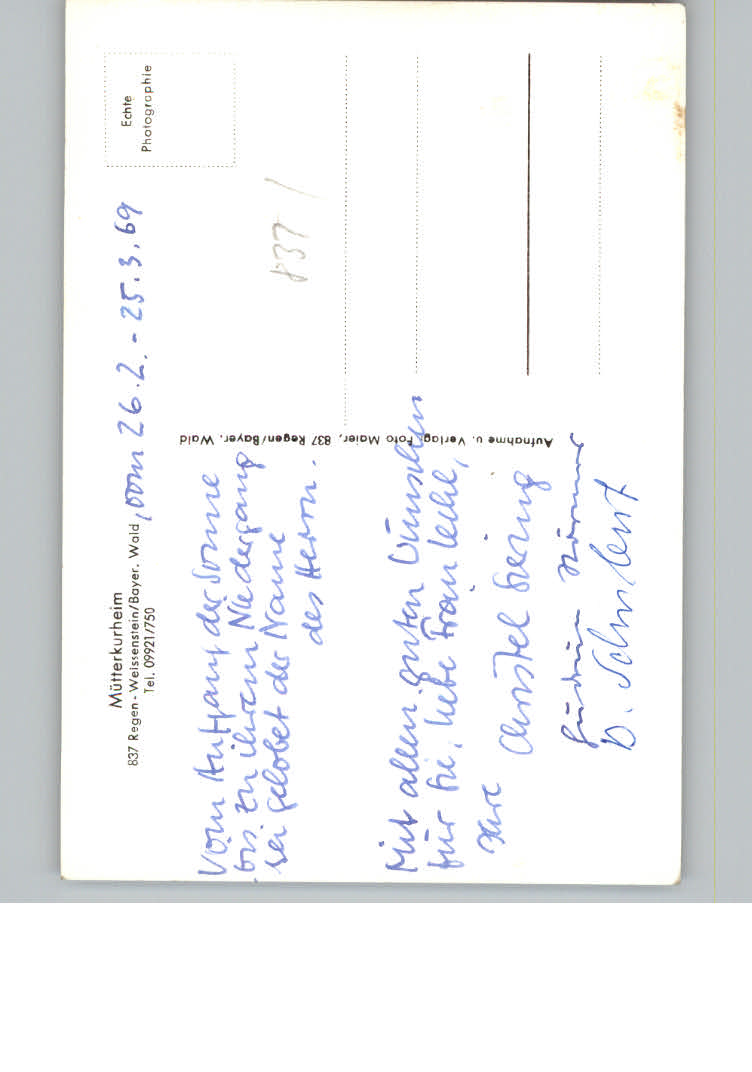 Mütterkurheim
837 Regen-Weissenstein/Bayer. Wald, vom 26.2. - 25.3.69
Tel. 09921/750
Echte
Photographie
Vom Aufgang der Sonne
bis zu ihrem Niedergang
sei gelobet der Name
des Herrn.
837
Mit allen guten Wünschen
für Sie, liebe Frau
Ihre Christel
Gudrun
D.
Aufnahme u. Verlag: Foto Maier, 837 Regen/Bayer. Wald